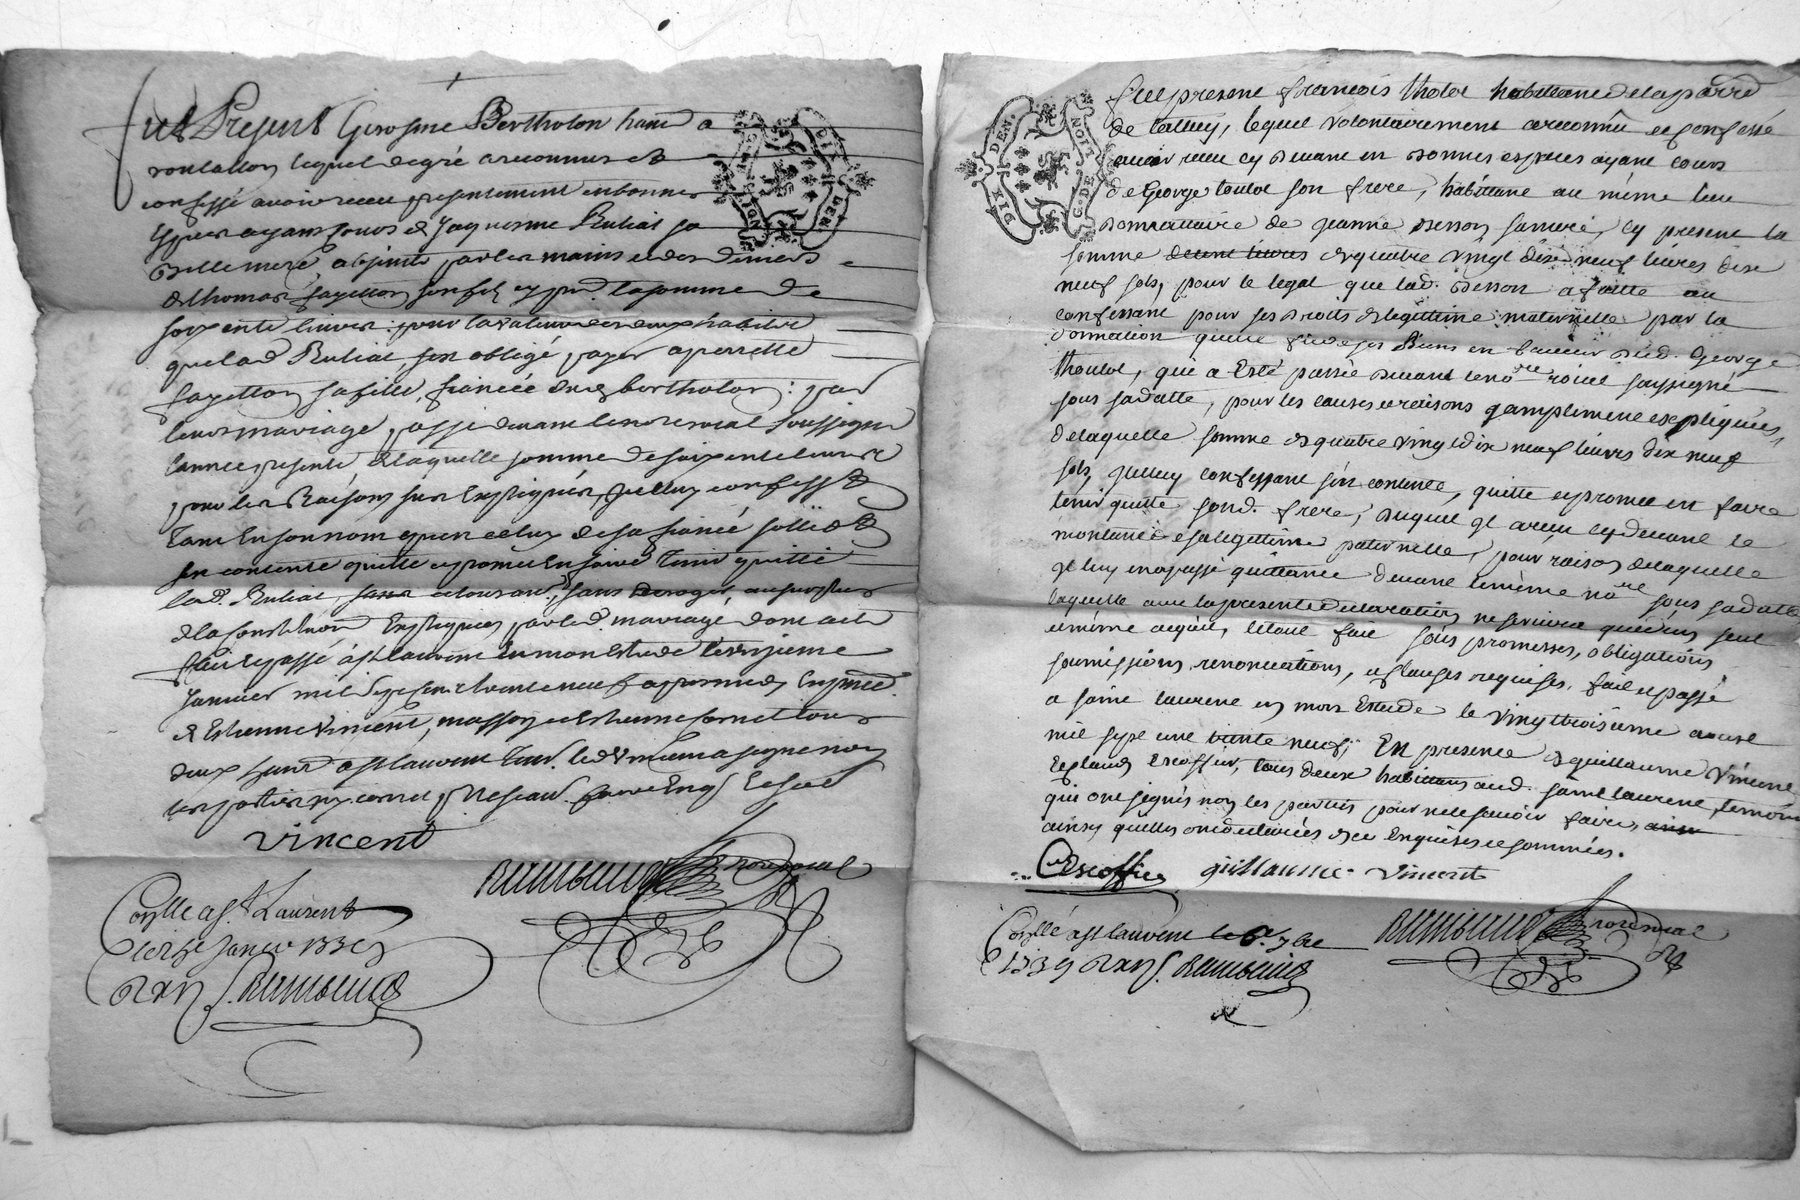 fut Present Gerosme Bertholon habit a
rontallon lequel de gré a reconnu et
confessé avoir receu presentement en bonnes
especes ayant cours de Jaqueme Ruliat sa
belle mere absente par les mains et des deniers
de thomas fayetton son fils cy pnt. la somme de
soixante livres: pour la valeur des deux habits
que lad Ruliat s'est obligé payer a perrette
fayetton sa fille, fiancée dud bertholon: par
leur mariage passé devant le not. royal soussigné
l'année presente de laquelle somme de soixante livres
pour les Raisons sus Expliquées, Icelluy confessant
tant En son nom qu'en celuy de sa fiancée
s'en contente quitte et promet En faire tenir quitte
lad. Ruliat, sans deroger, au surplus
de la constitution Expliquée par led. mariage dont acte
fait et passé a st laurent En mon Estude le
janvier mil sept cent trente neuf apres midy En pnce
d'Estienne Vincent, masson et Estienne cornet tous
deux habit a st laurent led Vincent a signé non
les parties ny cornet p. ne scav. faire Enq. Et
Vincent
not royal
Collé a st Laurent
janvier 1739
Fut present francois tholot habittant de la parre
de talluy, lequel volontairement a reconnu et confessé
avoir receu cy devant en bonnes especes ayant cours
de George toulot son frere, habittant au même lieu
donnattaire de jeanne besson sa mere, cy present la
somme de quatre vingt dix neuf livres dix
neuf sols, pour le legat que lad. besson a faitte au
confessant pour ses droits de legittime maternelle par la
donnation qu'elle fit de ses Biens en faveur dud. George
thoulot, qui a Esté passée devant le nore roial soussigné
sous sa datte, pour les causes et raisons q amplement expliquées,
de laquelle somme de quatre vingt dix neuf livres dix neuf
sols, Icelluy confessant s'en contente, quitte et promet en faire
tenir quitte sond. frere, duquel il a receu cy devant le
montant de sa legittime paternelle, pour raison de laquelle
il luy en a passé quittance devant le même nore sous sa datte
laquelle avec la presente declaration ne servira qu'a un seul
et même acquit, le tout fait sous promesses, obligations
soumissions, renonciations, et clauses requises, fait et passé
a saint laurent en mon Estude le vingt troisieme aoust
mil sept cent trente neuf, En presence de guillaume Vincent
Et claude Escoffier, tous deux habittans aud. saint laurent, temoins
qui ont signés non les parties pour ne le scavoir faire,
ainsy qu'elles ont declarées de ce Enquises et sommées.
Escoffier guillaume vincent
not royal
Collé a st laurent le 6e. 7bre
1739